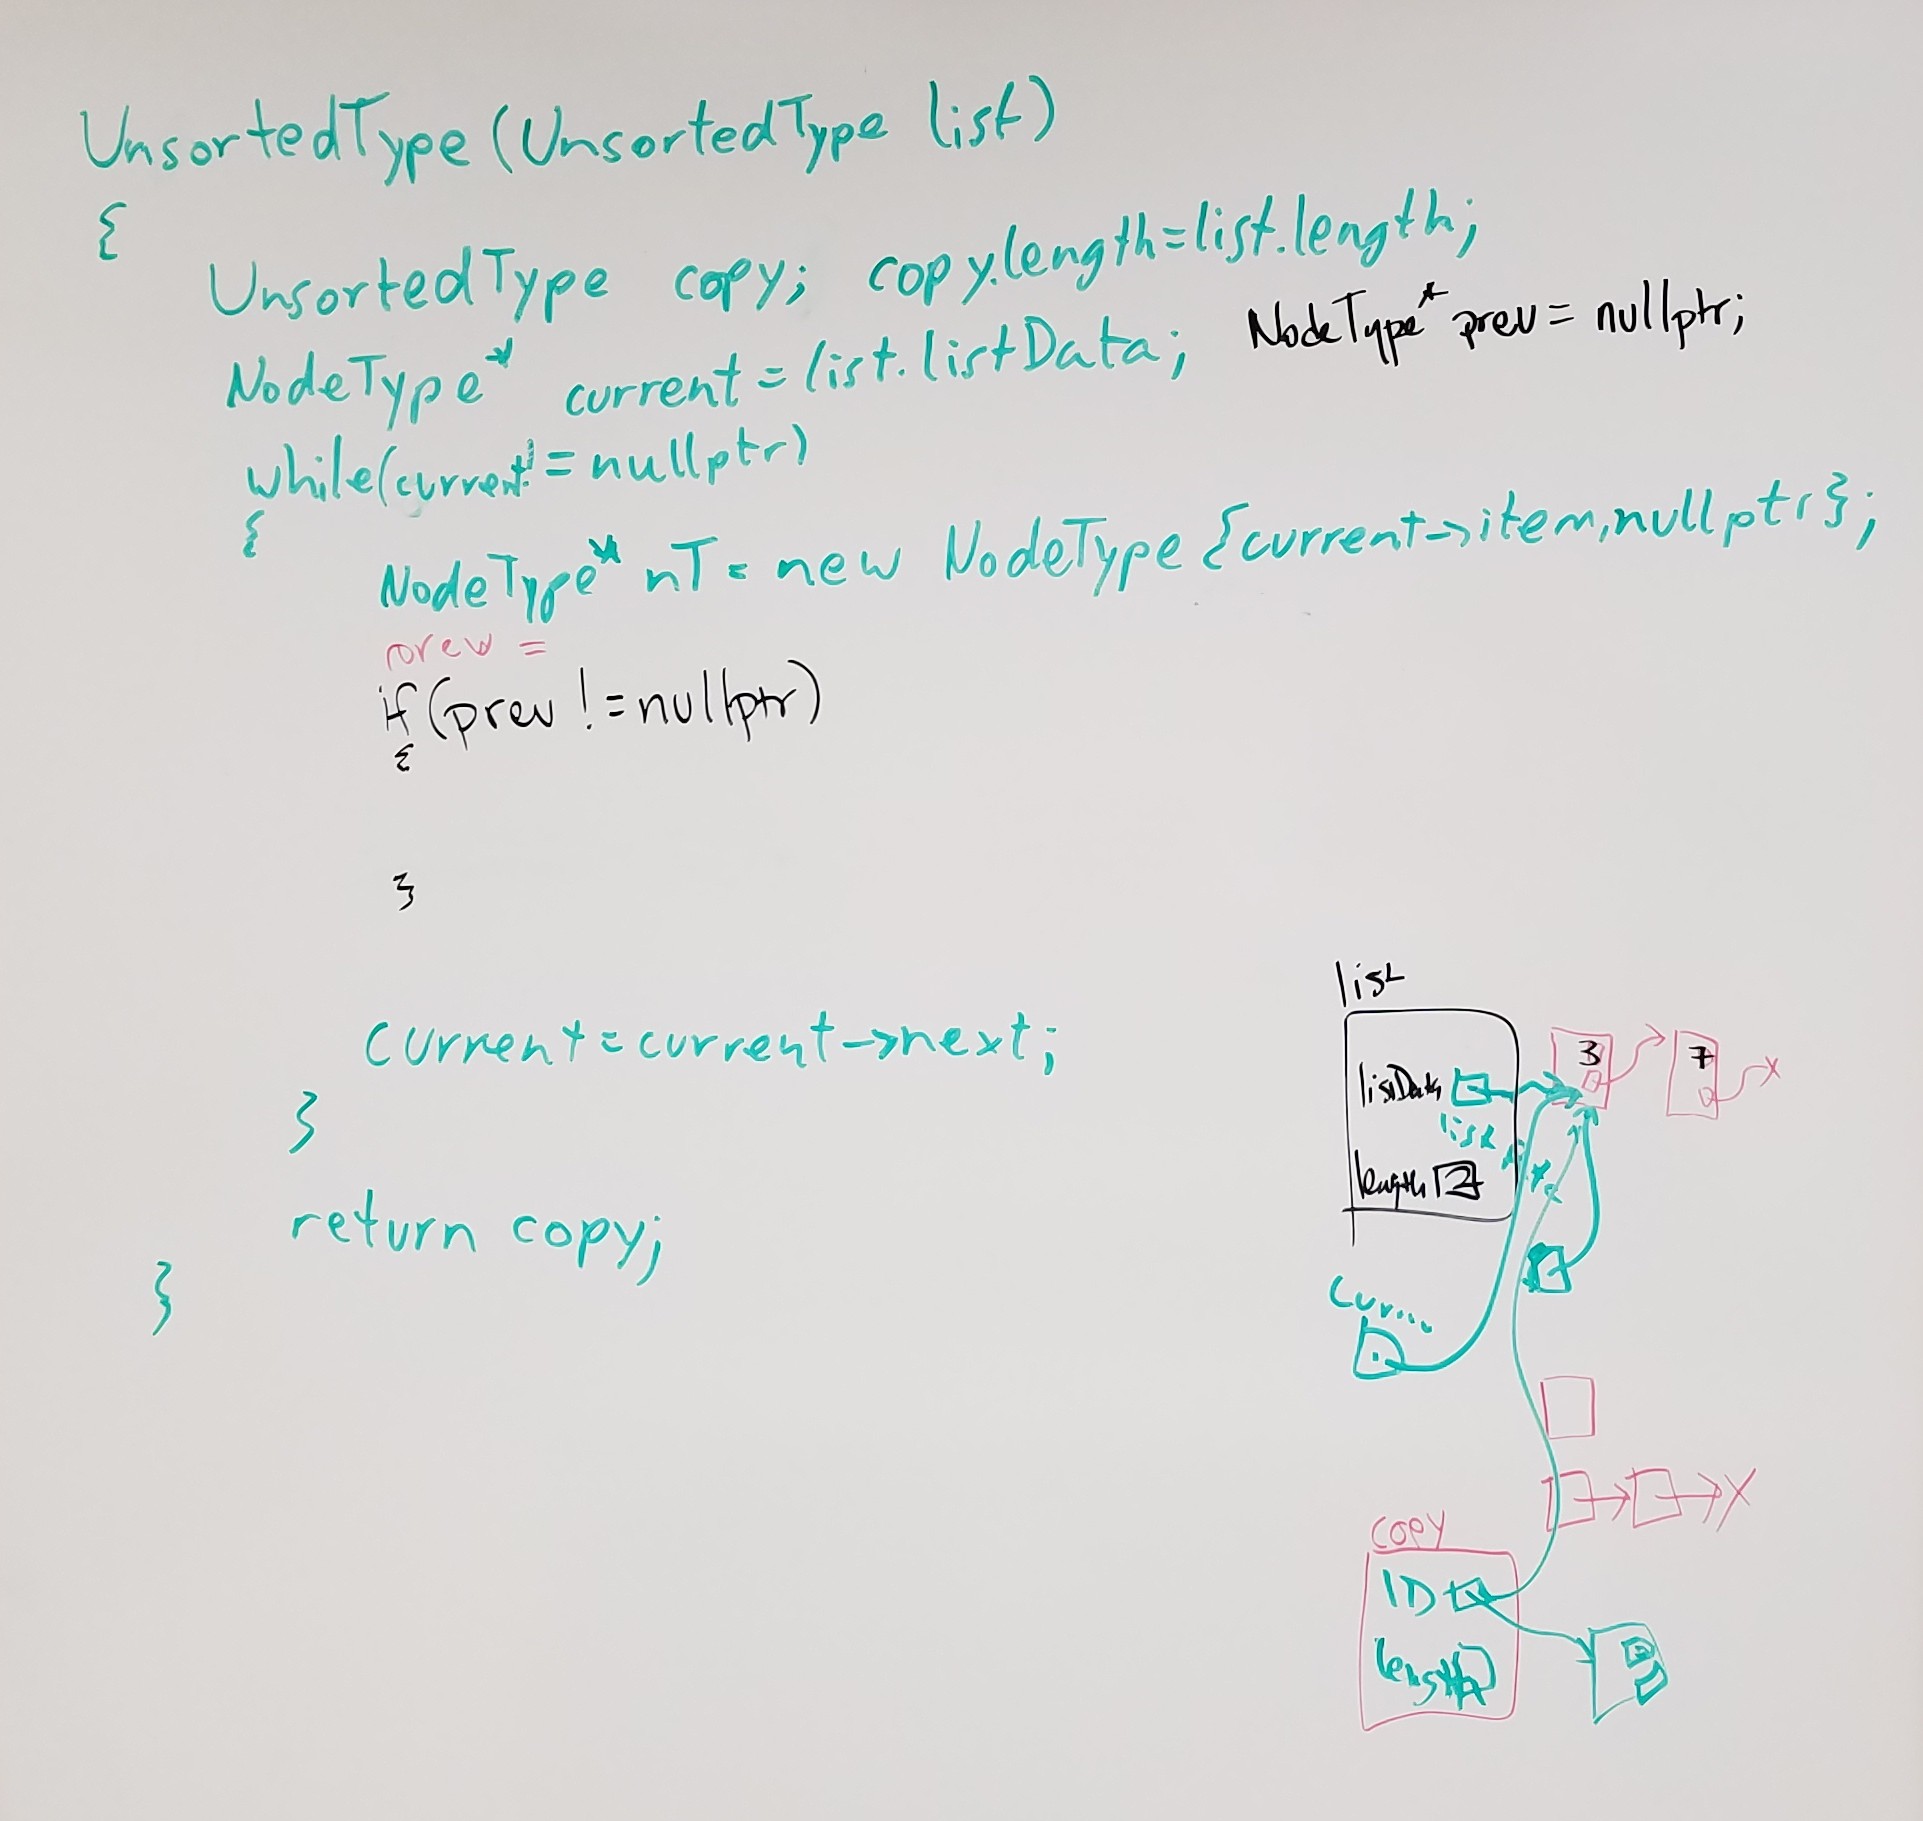 UnsortedType (UnsortedType list)
{
UnsortedType copy; copy.length=list.length;
NodeType* current = list.listData; NodeType* prev = nullptr;
while(current != nullptr)
{
NodeType* nT = new NodeType {current->item,nullptr};
prev =
if (prev != nullptr)
{
}
current = current->next;
}
return copy;
}
list
listData
3
7
X
list
length 2
Cur...
X
copy
lD
length